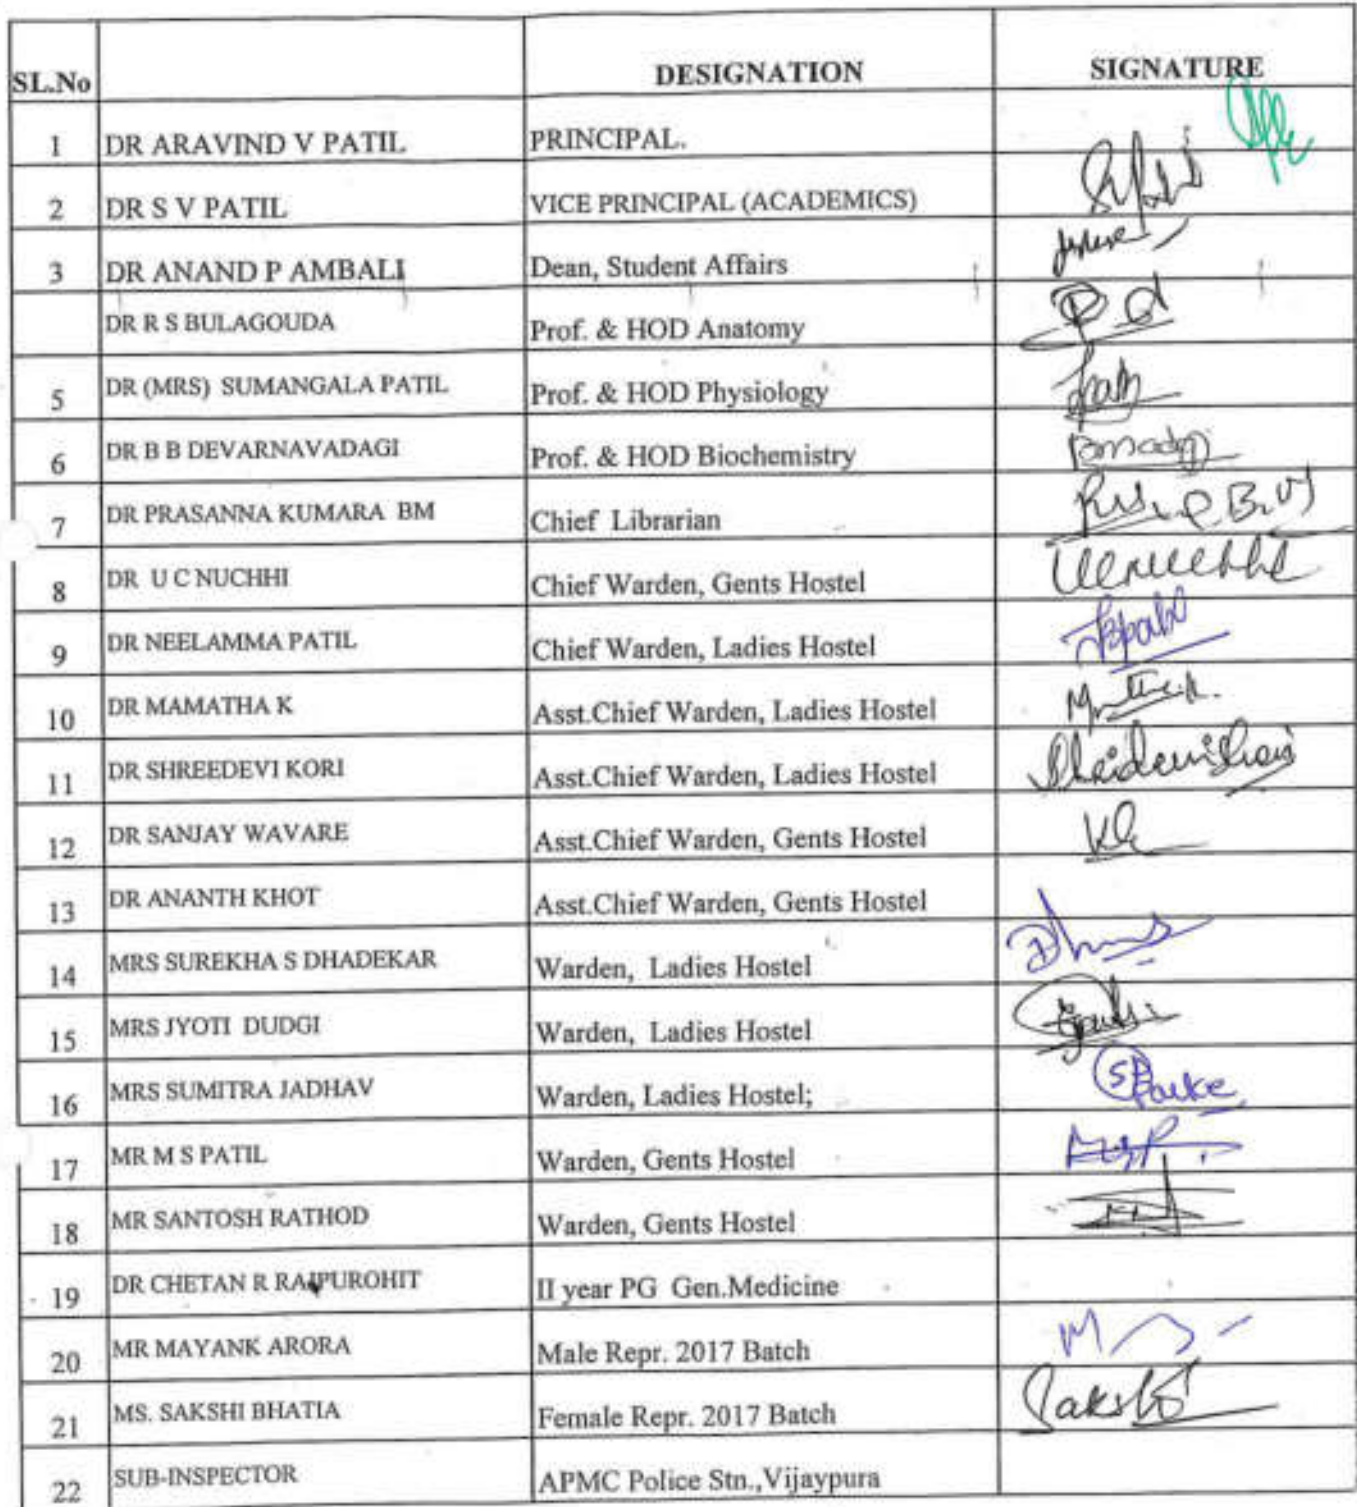 SL.No DESIGNATION SIGNATURE
1 DR ARAVIND V PATIL PRINCIPAL.
2 DR S V PATIL VICE PRINCIPAL (ACADEMICS)
3 DR ANAND P AMBALI Dean, Student Affairs
DR R S BULAGOUDA Prof. & HOD Anatomy
5 DR (MRS) SUMANGALA PATIL Prof. & HOD Physiology
6 DR B B DEVARNAVADAGI Prof. & HOD Biochemistry
7 DR PRASANNA KUMARA BM Chief Librarian
8 DR U C NUCHHI Chief Warden, Gents Hostel
9 DR NEELAMMA PATIL Chief Warden, Ladies Hostel
10 DR MAMATHA K Asst.Chief Warden, Ladies Hostel
11 DR SHREEDEVI KORI Asst.Chief Warden, Ladies Hostel
12 DR SANJAY WAVARE Asst.Chief Warden, Gents Hostel
13 DR ANANTH KHOT Asst.Chief Warden, Gents Hostel
14 MRS SUREKHA S DHADEKAR Warden, Ladies Hostel
15 MRS JYOTI DUDGI Warden, Ladies Hostel
16 MRS SUMITRA JADHAV Warden, Ladies Hostel;
17 MR M S PATIL Warden, Gents Hostel
18 MR SANTOSH RATHOD Warden, Gents Hostel
19 DR CHETAN R RAJPUROHIT II year PG Gen.Medicine
20 MR MAYANK ARORA Male Repr. 2017 Batch
21 MS. SAKSHI BHATIA Female Repr. 2017 Batch Sakshi
22 SUB-INSPECTOR APMC Police Stn.,Vijaypura